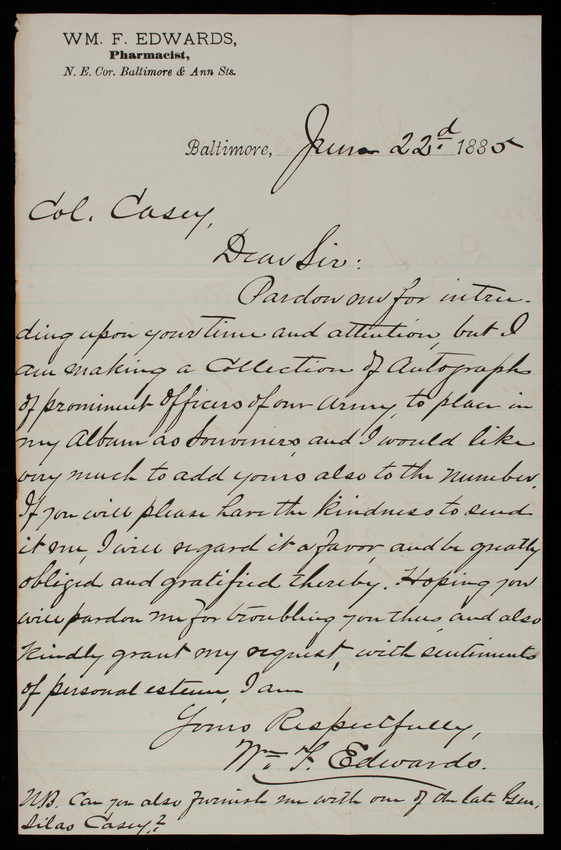 WM. F. EDWARDS,
Pharmacist,
N. E. Cor. Baltimore & Ann Sts.
Baltimore, June 22d. 1885
Col. Casey,
Dear Sir:
Pardon me for intru-
ding upon your time and attention, but I
am making a Collection of Autographs
of prominent Officers of our Army, to place in
my Album as Souvenirs, and I would like
very much to add yours also to the number.
If you will please have the kindness to send
it me, I will regard it a favor, and be greatly
obliged and gratified thereby. Hoping you
will pardon me for troubling you thus, and also
kindly grant my request, with sentiments
of personal esteem, I am
Yours Respectfully,
Wm. F. Edwards.
N.B. Can you also furnish me with one of the late Gen.
Silas Casey?